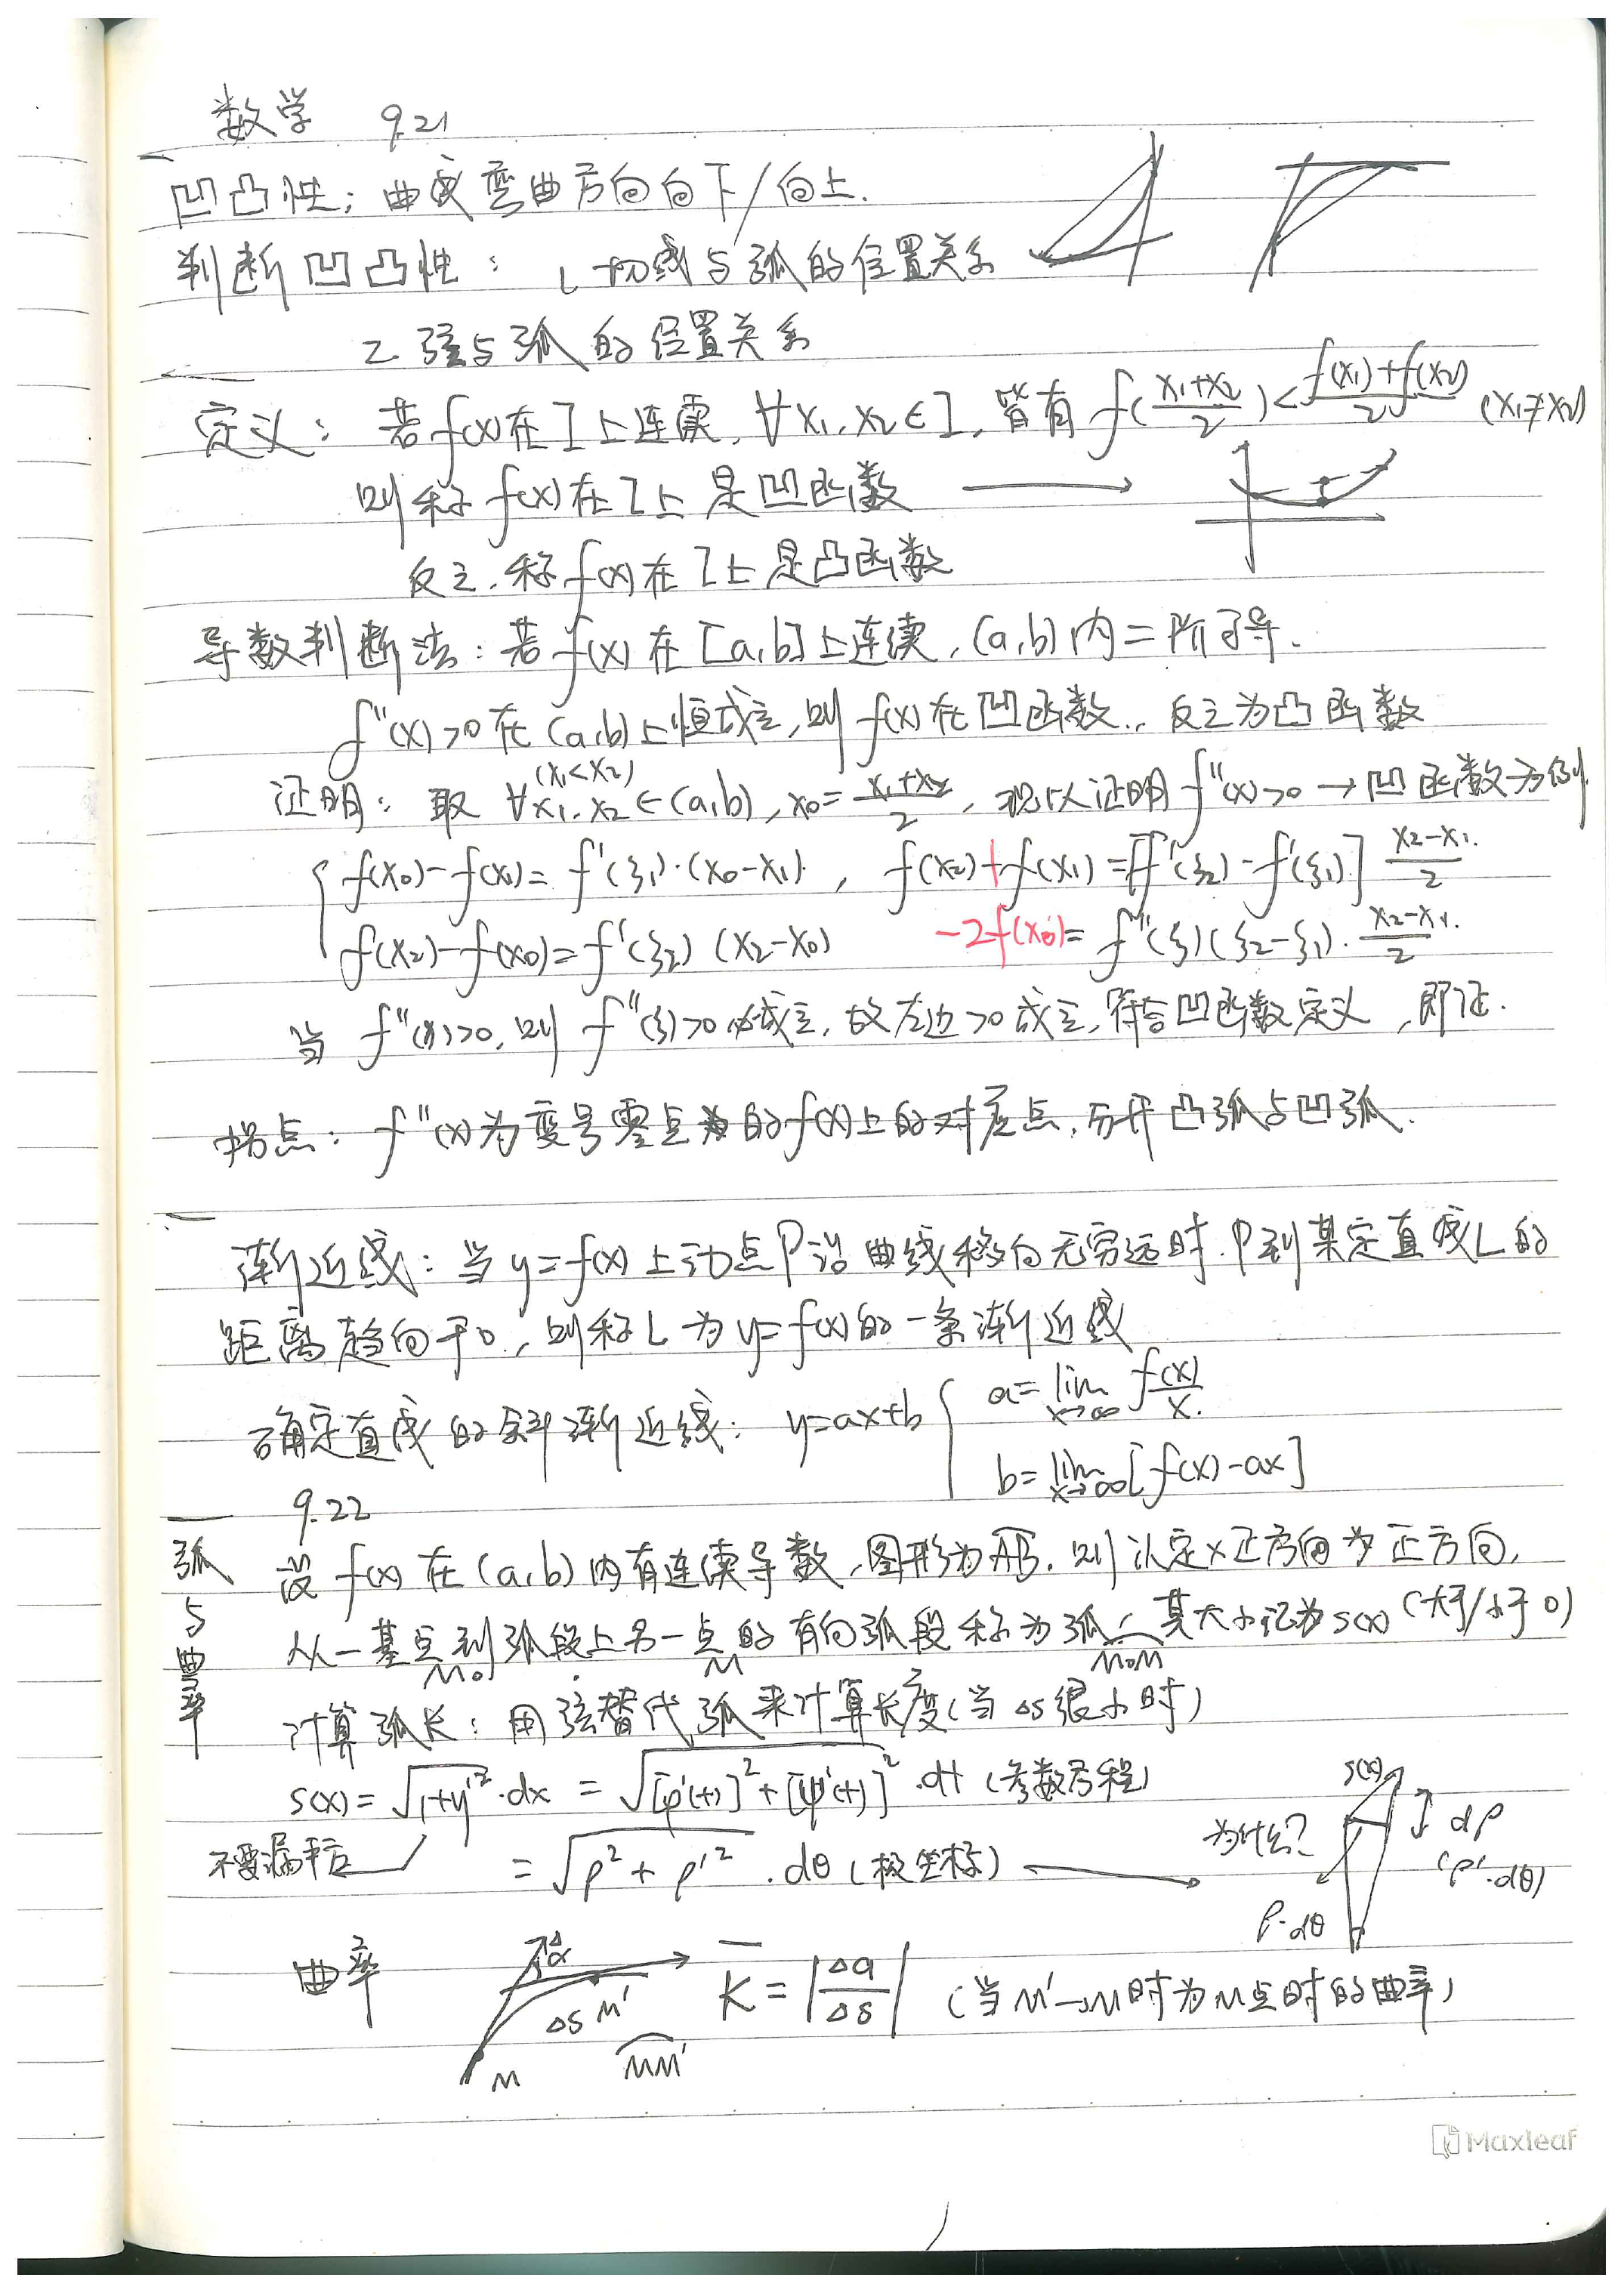 数学 9.21
凹凸性：曲线弯曲方向向下/向上.
判断凹凸性：1.切线与弧的位置关系
2.弦与弧的位置关系
定义：若f(x)在I上连续，∀x₁,x₂∈I，皆有 f((x₁+x₂)/2)<(f(x₁)+f(x₂))/2 (x₁≠x₂)
则称f(x)在I上是凹函数
反之，称f(x)在I上是凸函数
导数判断法：若f(x)在[a,b]上连续，(a,b)内二阶可导.
f''(x)>0在(a,b)上恒成立，则f(x)在凹函数.，反之为凸函数
(x₁<x₂)
证明：取∀x₁,x₂∈(a,b)，x₀=(x₁+x₂)/2，现以证明f''(x)>0→凹函数为例.
f(x₀)-f(x₁)=f'(ξ₁)·(x₀-x₁)，f(x₂)+f(x₁)=[f'(ξ₂)-f'(ξ₁)] (x₂-x₁)/2
f(x₂)-f(x₀)=f'(ξ₂)(x₂-x₀) -2f(x₀)=f''(ξ)(ξ₂-ξ₁)·(x₂-x₁)/2
当f''(x)>0，则f''(ξ)>0必成立，故左边>0成立，符合凹函数定义，即证.
拐点：f''(x)为变号零点的f(x)上的对应点，分开凸弧与凹弧.
渐近线：当y=f(x)上动点P沿曲线移向无穷远时，P到某定直线L的
距离趋向于0，则称L为y=f(x)的一条渐近线
确定直线的斜渐近线：y=ax+b { a=lim x→∞ f(x)/x
b=lim x→∞ [f(x)-ax]
9.22
弧与曲率
设f(x)在(a,b)内有连续导数，图形为AB，则认定x正方向为正方向，
从一基点到弧段上另一点的有向弧段称为弧，其大小记为s(x)(大于/小于0)
M₀ M M₀M
计算弧长：用弦替代弧来计算长度(当Δs很小时)
s(x)=√(1+y'²)·dx=√([φ'(t)]²+[ψ'(t)]²)·dt(参数方程)
不要漏平方
=√(ρ²+ρ'²)·dθ(极坐标)
为什么?
s(x)
dρ
(ρ'·dθ)
ρ·dθ
曲率
Δα
Δs M'
M
MM'
K=|Δα/Δs| (当M'→M时为M点时的曲率)
Maxleaf